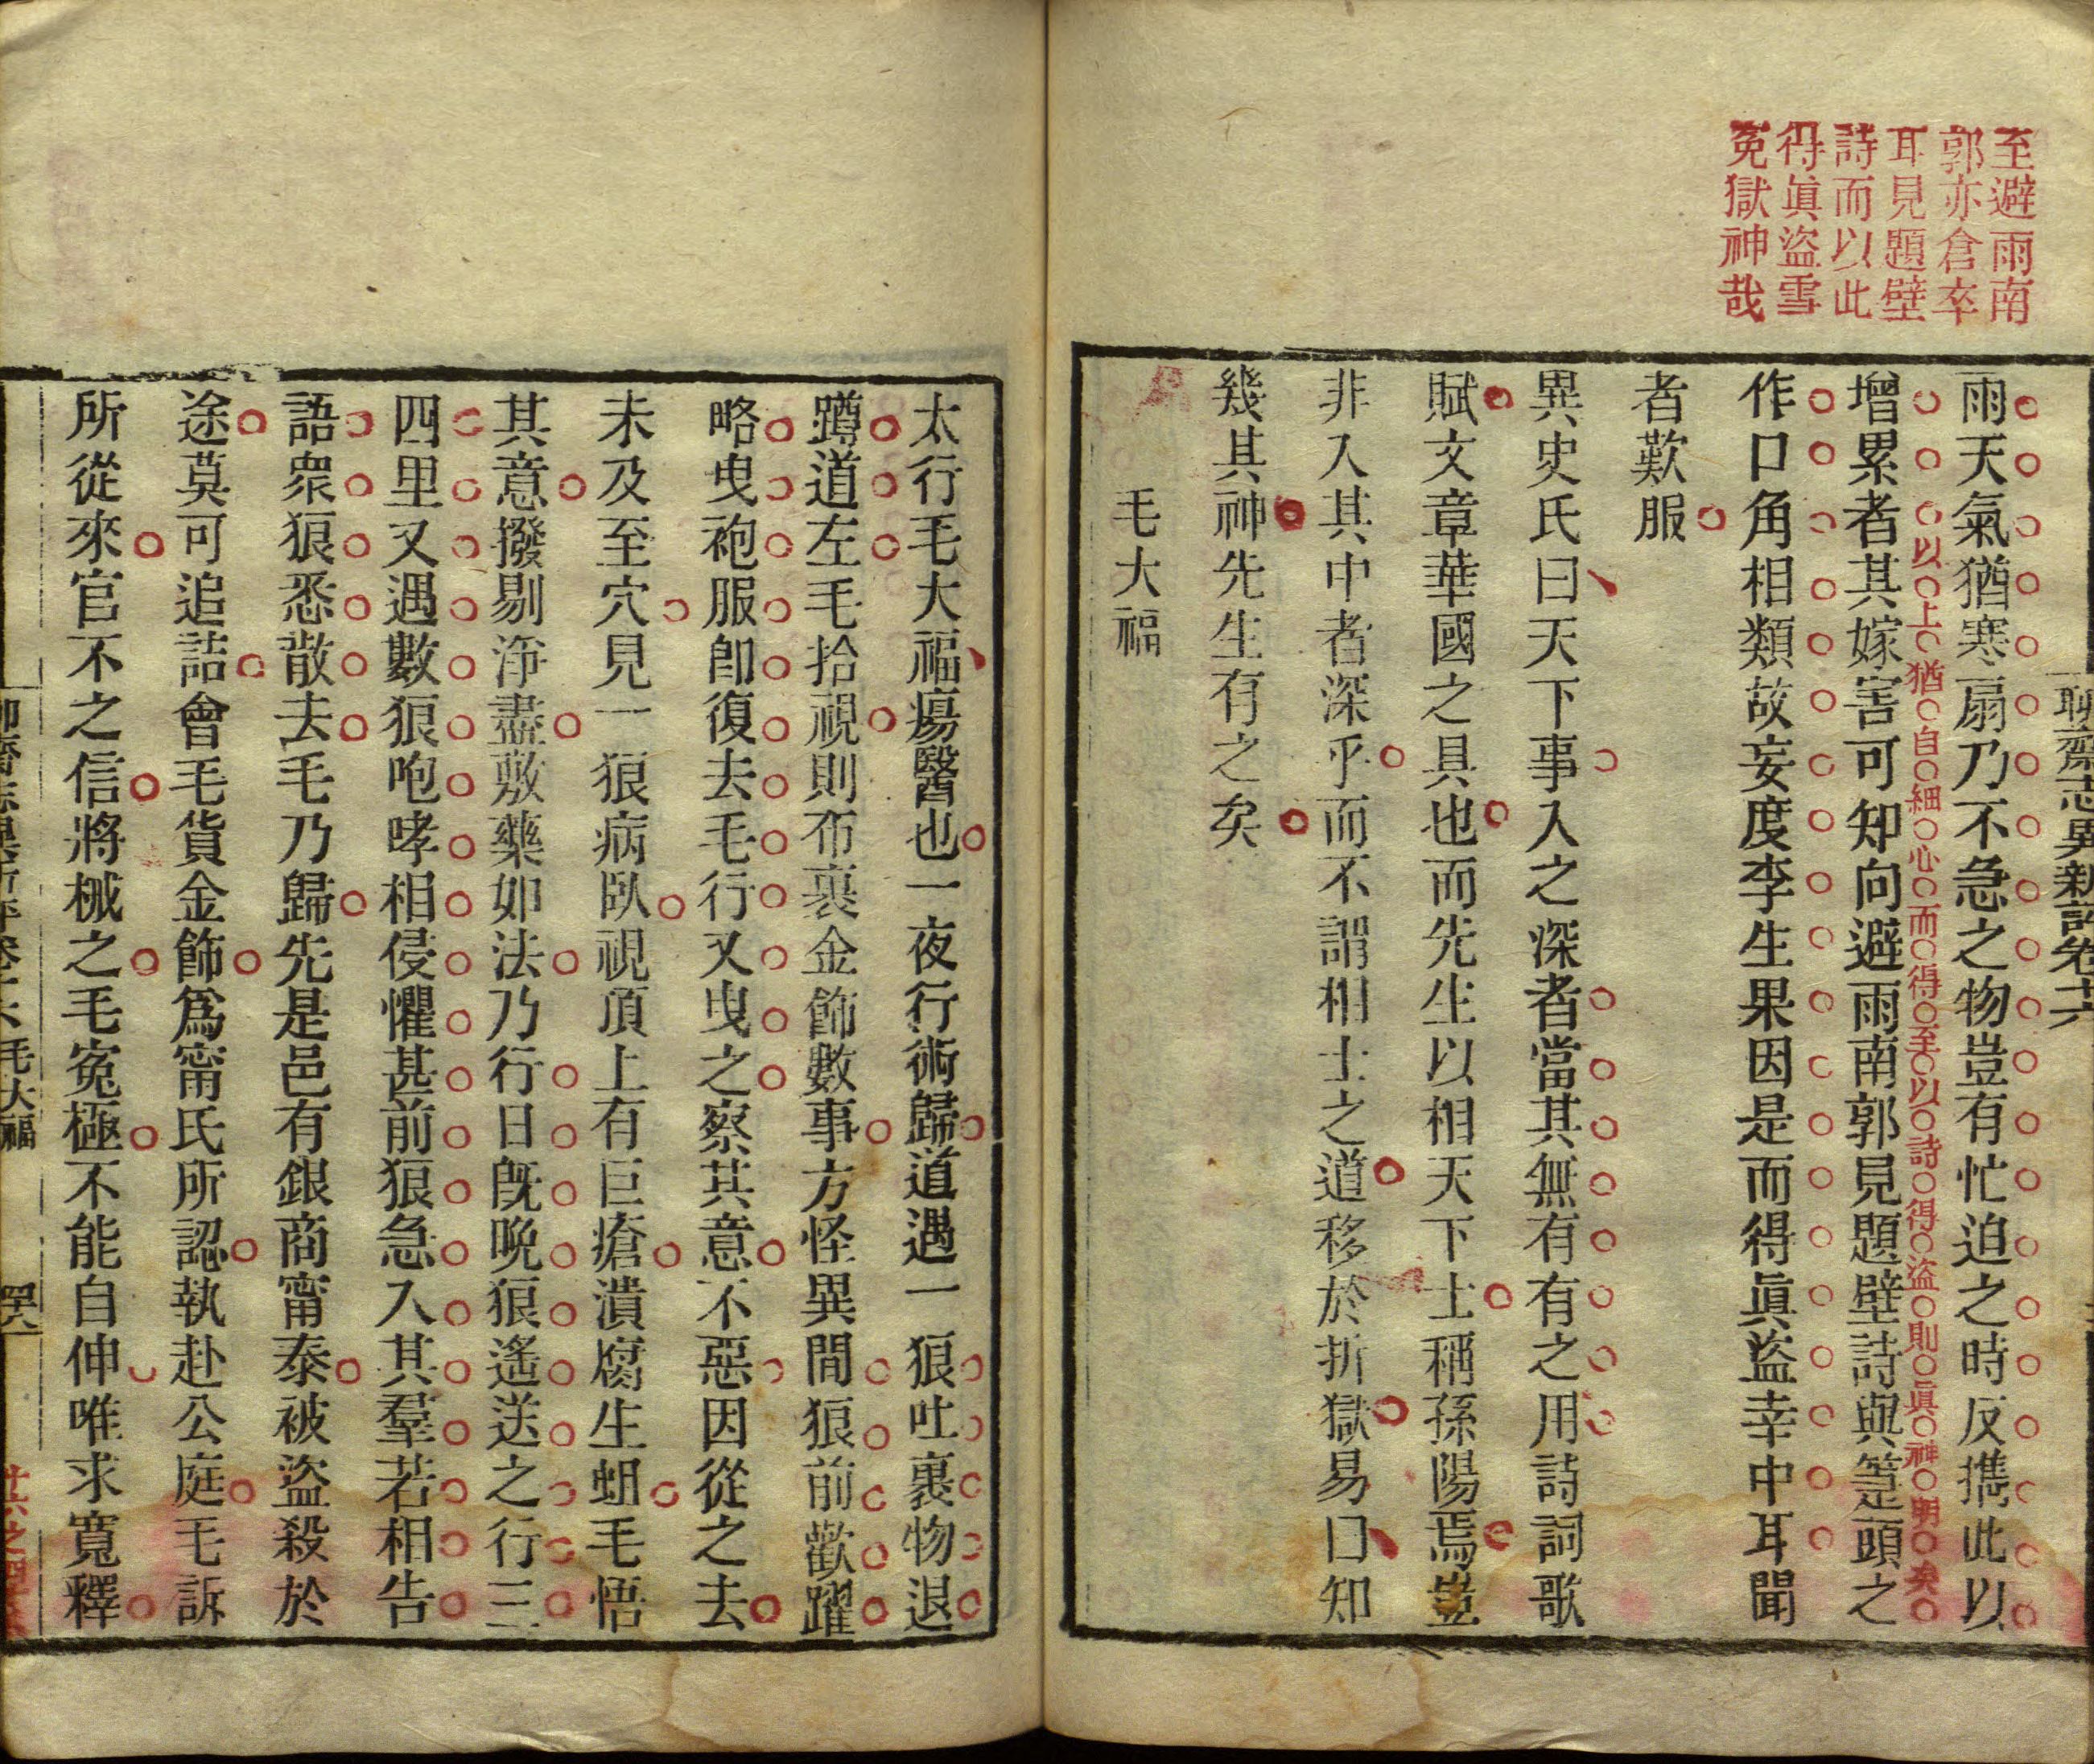 至避雨南
郭亦倉卒
耳見題壁
詩而以此
得眞盜雪
冤獄神哉
聊齋志異新評卷十六
雨天氣猶寒扇乃不急之物豈有忙迫之時反攜此以
以上猶自細心而得至以詩得盜則眞神明矣
增累者其嫁害可知向避雨南郭見題壁詩與箑頭之
作口角相類故妄度李生果因是而得眞盜幸中耳聞
者歎服
異史氏曰天下事入之深者當其無有有之用詩詞歌
賦文章華國之具也而先生以相天下士稱孫陽焉豈
非入其中者深乎而不謂相士之道移於折獄易曰知
幾其神先生有之矣
毛大福
太行毛大福瘍醫也一夜行術歸道遇一狼吐裹物退
蹲道左毛拾視則布裹金飾數事方怪異間狼前歡躍
略曳袍服卽復去毛行又曳之察其意不惡因從之去
未及至穴見一狼病臥視頂上有巨瘡潰腐生蛆毛悟
其意撥剔淨盡敷藥如法乃行日旣晚狼遙送之行三
四里又遇數狼咆哮相侵懼甚前狼急入其羣若相告
語衆狼悉散去毛乃歸先是邑有銀商甯泰被盜殺於
途莫可追詰會毛貨金飾爲甯氏所認執赴公庭毛訴
所從來官不之信將械之毛寃極不能自伸唯求寬釋
毛大福